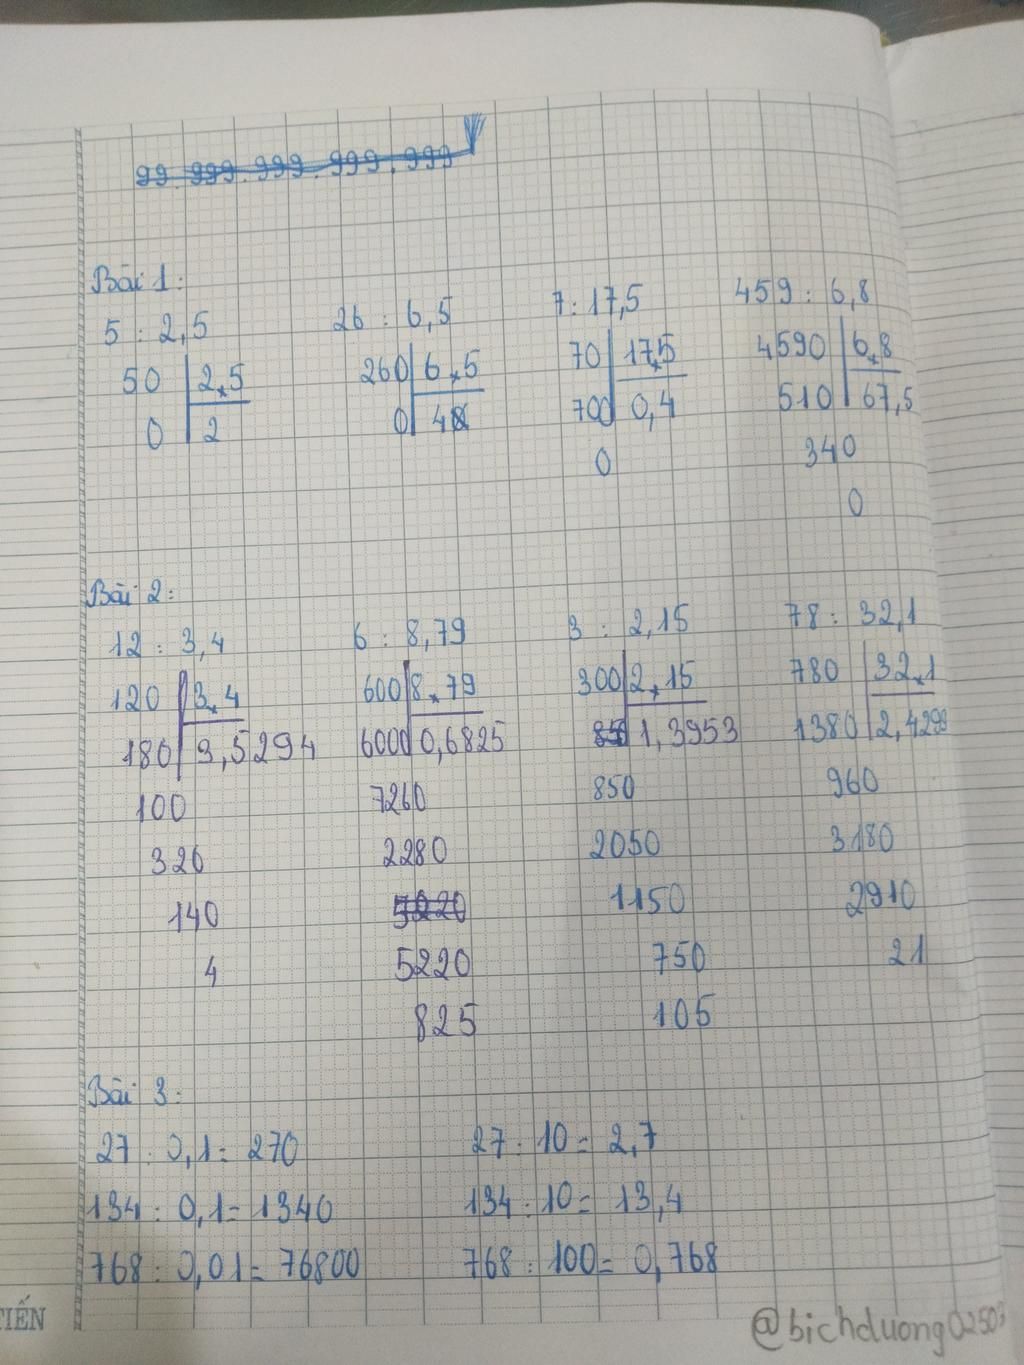 99.999.999.999.999
Bài 1:
5 : 2,5 26 : 6,5 7 : 17,5 459 : 6,8
50 2,5 260 6,5 70 17,5 4590 6,8
0 2 0 4 700 0,4 510 67,5
0 340
0
Bài 2:
12 : 3,4 6 : 8,79 3 : 2,15 78 : 32,1
120 3,4 600 8,79 300 2,15 780 32,1
180 3,5294 6000 0,6825 1,3953 1380 2,4299
100 7260 850 960
320 2280 2050 3180
140 1150 2910
4 5220 750 21
825 105
Bài 3:
27 : 0,1 = 270 27 : 10 = 2,7
134 : 0,1 = 1340 134 : 10 = 13,4
768 : 0,01 = 76800 768 : 100 = 0,768
TIẾN
@bichduong02503